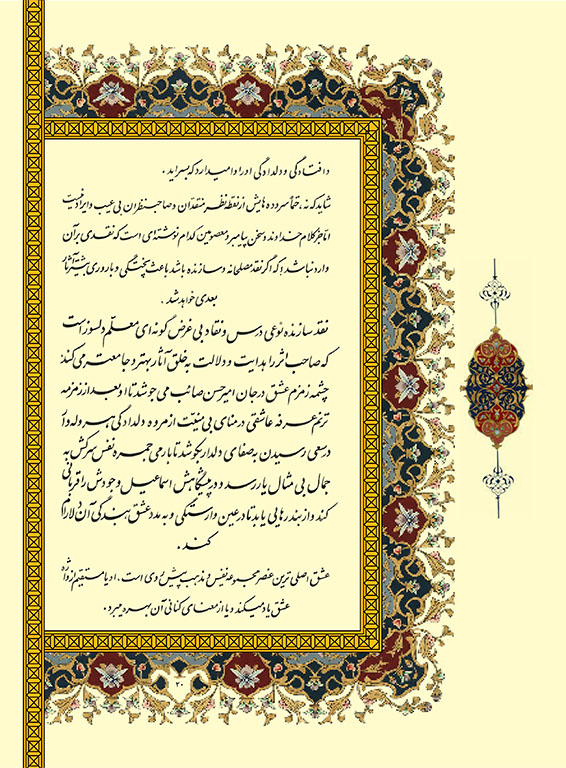 دافتادگی و دلدادگی او را وامیدارد که بسراید .
شاید که نه ، حتماً سروده هایش از نقطه نظر منتقدان و صاحبنظران بی عیب و ایراد نیست
اما جز کلام خداوند و سخن پیامبر و معصومین کدام نوشته ای است که نقدی بر آن
وارد نباشد ! که اگر نقد مصلحانه و سازنده باشد باعث پختگی و باروری بیشتر آثار
بعدی خواهد شد .
نقد سازنده نوعی درس و نقاد بی غرض گونه ای معلّم دلسوز است
که صاحب اثر را هدایت و دلالت به خلق آثار بهتر و جامعتر می کند
چشمه زمزم عشق در جان امیرحسن صائب می جوشد تا او بعد از زمزمه
ترنم عرفه عاشقی در منای بی منیّت از مروه دلدادگی هروله وار
در سعی رسیدن به صفای دلدار بکوشد تا با رمی جمره نفس سرکش به
جمال بی مثال یار رسد و در پیشگاهش اسماعیل وجودش را قربانی
کند و از بند رهایی یابد تا در عین وارستگی و به مدد عشق بندگی آن دلارام
کند .
عشق اصلی ترین عنصر مجموعه نفیس و مذهب پیش روی است . او یا مستقیم از واژه
عشق یاد میکند و یا از معنای کنائی آن بهره میبرد .
۲۰